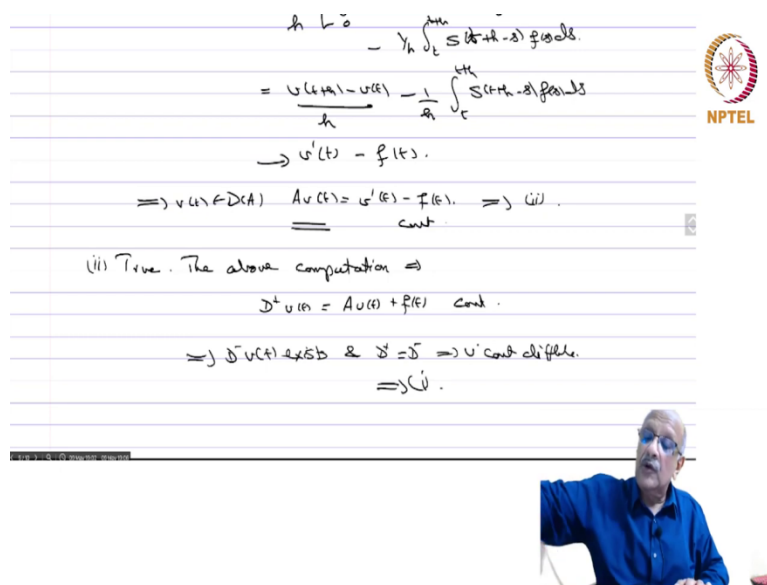 h ↓ 0
- 1/h ∫_t^{t+h} S(t+h-s) f(s) ds.
= v(t+h) - v(t) / h - 1/h ∫_t^{t+h} S(t+h-s) f(s) ds
NPTEL
→ v'(t) - f(t).
⇒ v(t) ∈ D(A) Av(t) = v'(t) - f(t). ⇒ (ii).
cont
(ii) True. The above computation ⇒
D⁺v(t) = Av(t) + f(t) cont.
⇒ D⁻v(t) exists & D⁺ = D⁻ ⇒ v cont diffble.
⇒ (i).